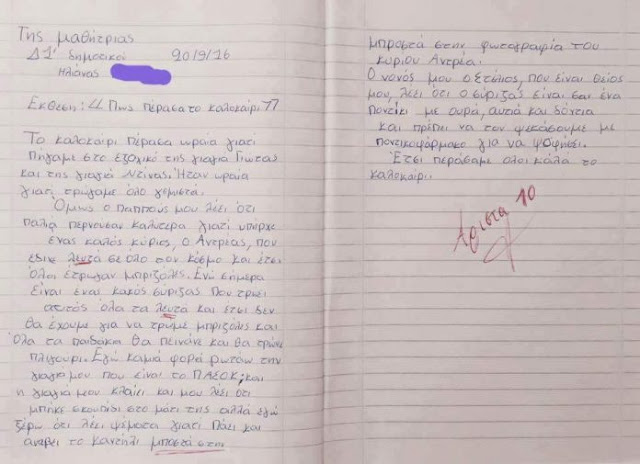 Της μαθήτριας
Δ1' δημοτικού 20/9/16
Ηλιάνας
Έκθεση: " Πως πέρασα το καλοκαίρι "
Το καλοκαίρι πέρασα ωραία γιατί
πήγαμε στο εξοχικό της γιαγιά Γιώτας
και της γιαγιά Ντίνας. Ήταν ωραία
γιατί τρώγαμε όλο γεμιστά.
Όμως ο παππούς μου λέει ότι
παλιά περνούσαν καλύτερα γιατί υπήρχε
ένας καλός κύριος, ο Αντρέας, που
έδινε λευτά σε όλο τον κόσμο και έτσι
όλοι έτρωγαν μπριζόλες. Ενώ σήμερα
είναι ένας κακός σύριζας που τρώει
αυτός όλα τα λευτά και έτσι δεν
θα έχουμε για να τρώμε μπριζόλες και
όλα τα παιδάκια θα πεινάνε και θα τρώνε
πλιγούρι. Εγώ καμιά φορά ρωτάω την
γιαγιά μου που είναι το ΠΑΣΟΚ; και
η γιαγιά μου κλαίει και μου λέει ότι
μπήκε σκουπίδι στο μάτι της αλλά εγώ
ξέρω ότι λέει ψέματα γιατί πάει και
ανάβει το καντήλι μποστά στην
μπροστά στην φωτογραφία του
κύριου Αντρέα.
Ο νονός μου ο Στέλιος, που είναι θείος
μου, λέει ότι ο σύριζας είναι σαν ένα
ποντίκι με ουρά, αυτιά και δόντια
και πρέπει να τον ψεκάσουμε με
ποντικοφάρμακο για να ψοφήσει.
Έτσι περάσαμε όλοι καλά το
καλοκαίρι.
Άριστα 10